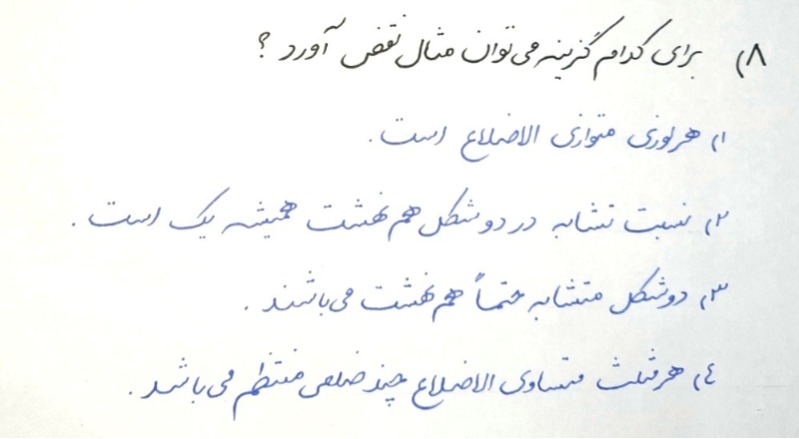 ۸) برای کدام گزینه می‌توان مثال نقض آورد ؟
۱) هر لوزی متوازی الاضلاع است.
۲) نسبت تشابه در دو شکل هم نهشت همیشه یک است .
۳) دو شکل متشابه حتماً هم نهشت می‌باشند .
۴) هر مثلث متساوی الاضلاع چند ضلعی منتظم می‌باشد .